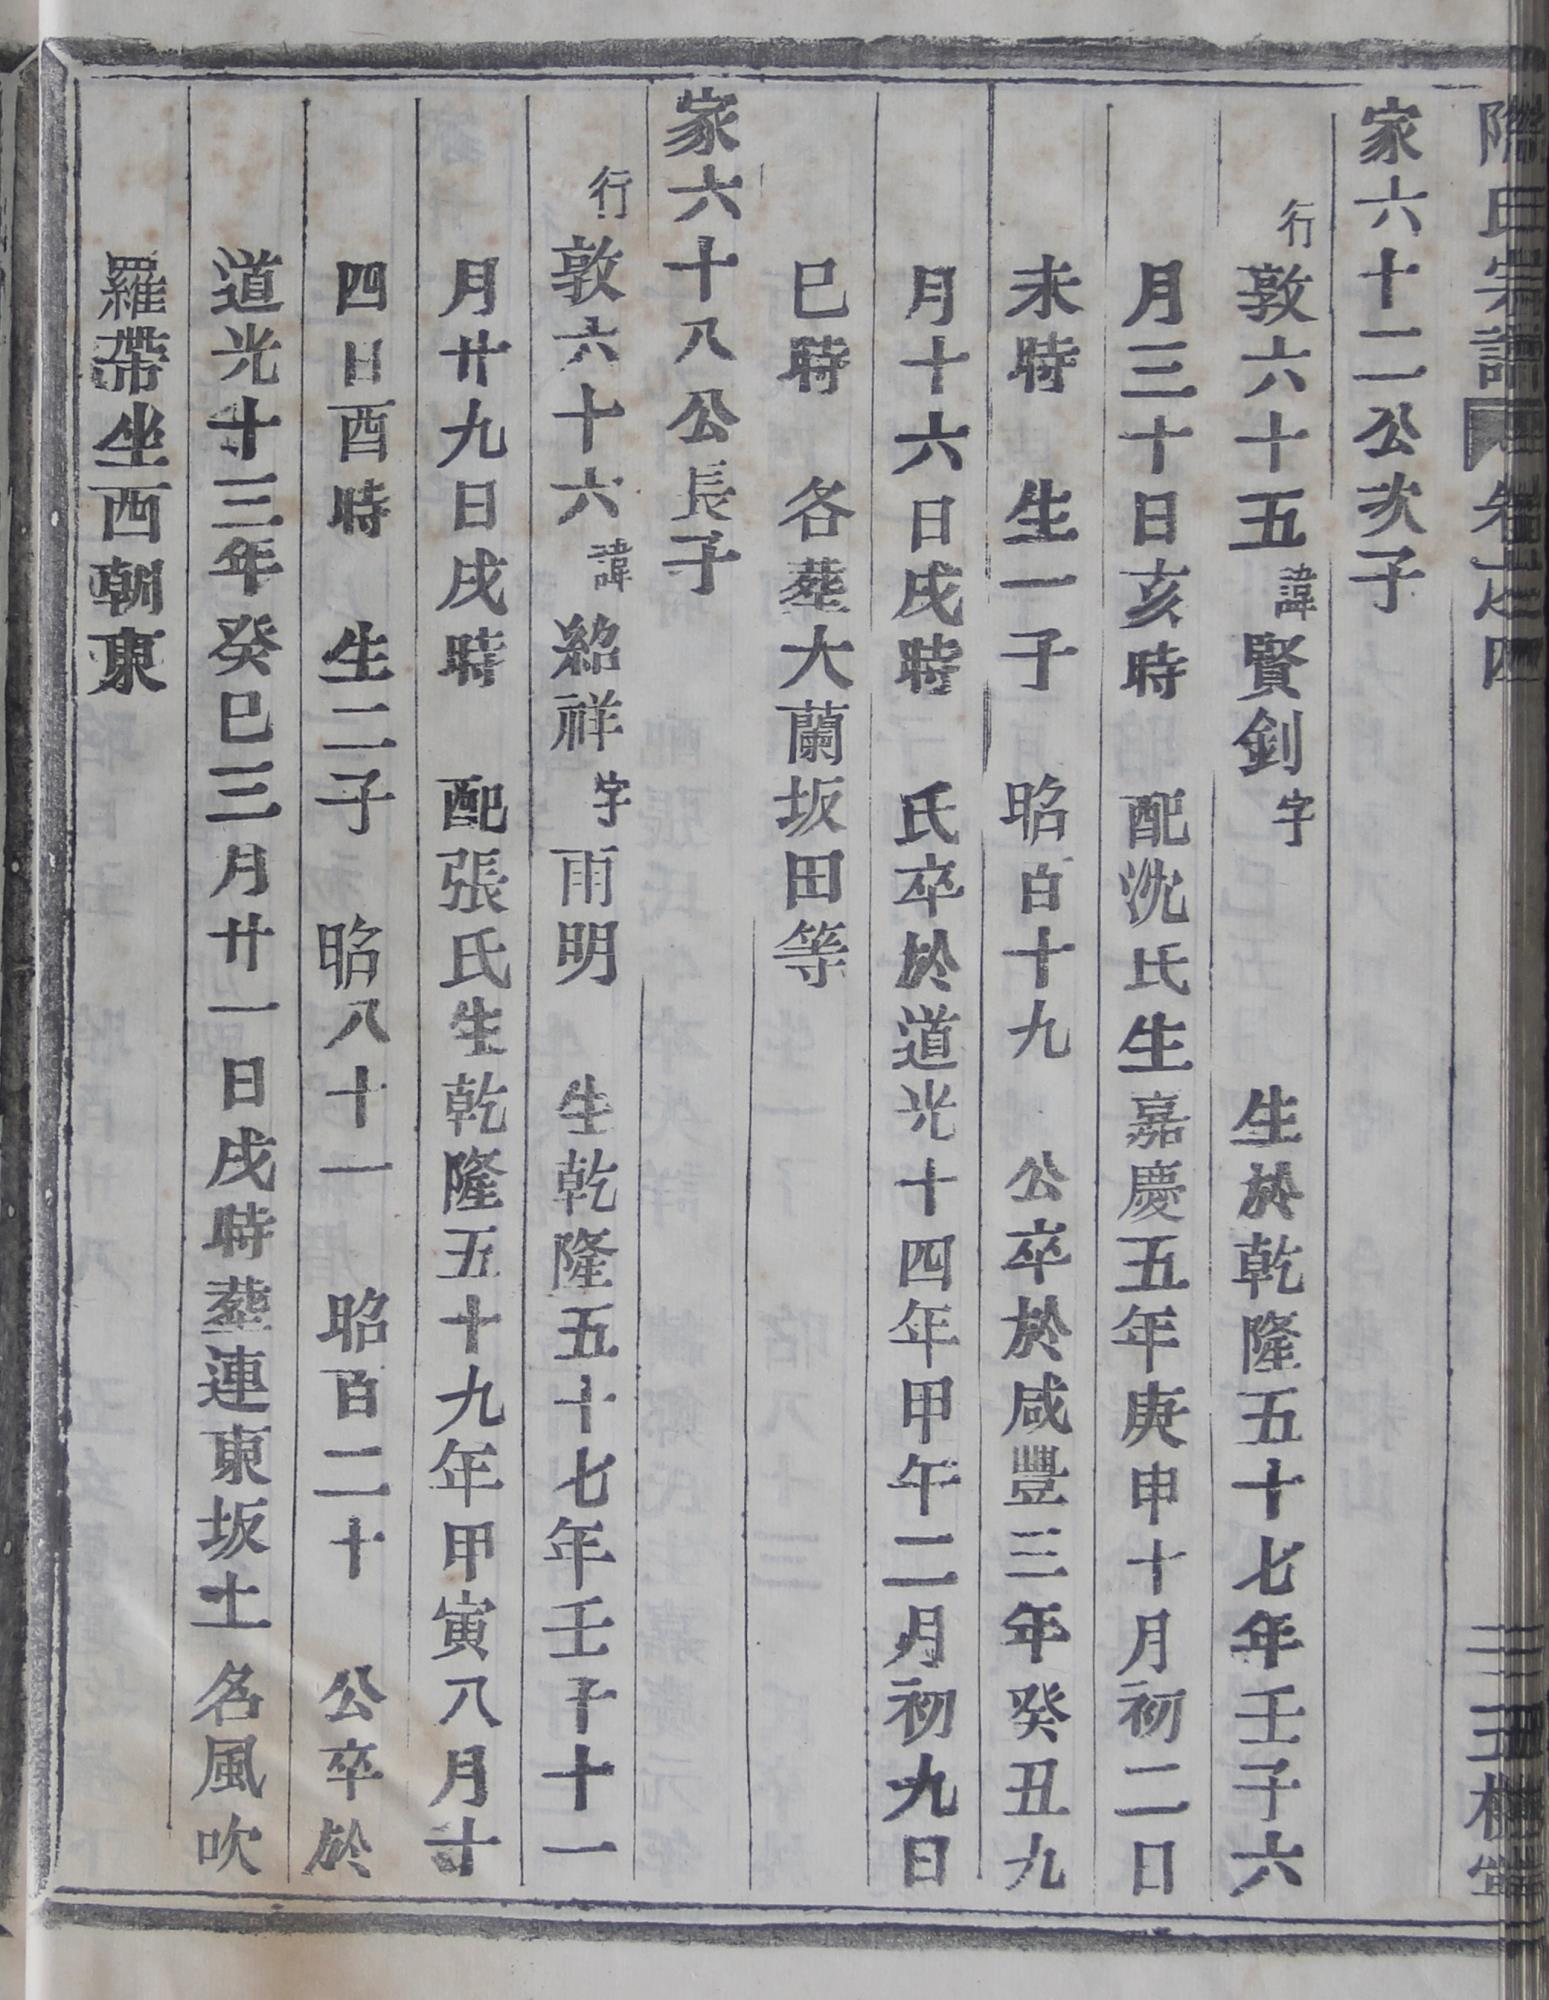 氏宗譜 卷之四
家六十二公次子
行敦六十五諱賢釗字 生於乾隆五十七年壬子六
月三十日亥時 配沈氏生嘉慶五年庚申十月初二日
未時 生一子 昭百十九 公卒於咸豐三年癸丑九
月十六日戌時 氏卒於道光十四年甲午二月初九日
巳時 各塟大蘭坂田等
家六十八公長子
行敦六十六諱紹祥字雨明 生乾隆五十七年壬子十一
月廿九日戌時 配張氏生乾隆五十九年甲寅八月十
四日酉時 生二子 昭八十一 昭百二十 公卒於
道光十三年癸巳三月廿一日戌時塟連東坂土名風吹
羅帶坐西朝東